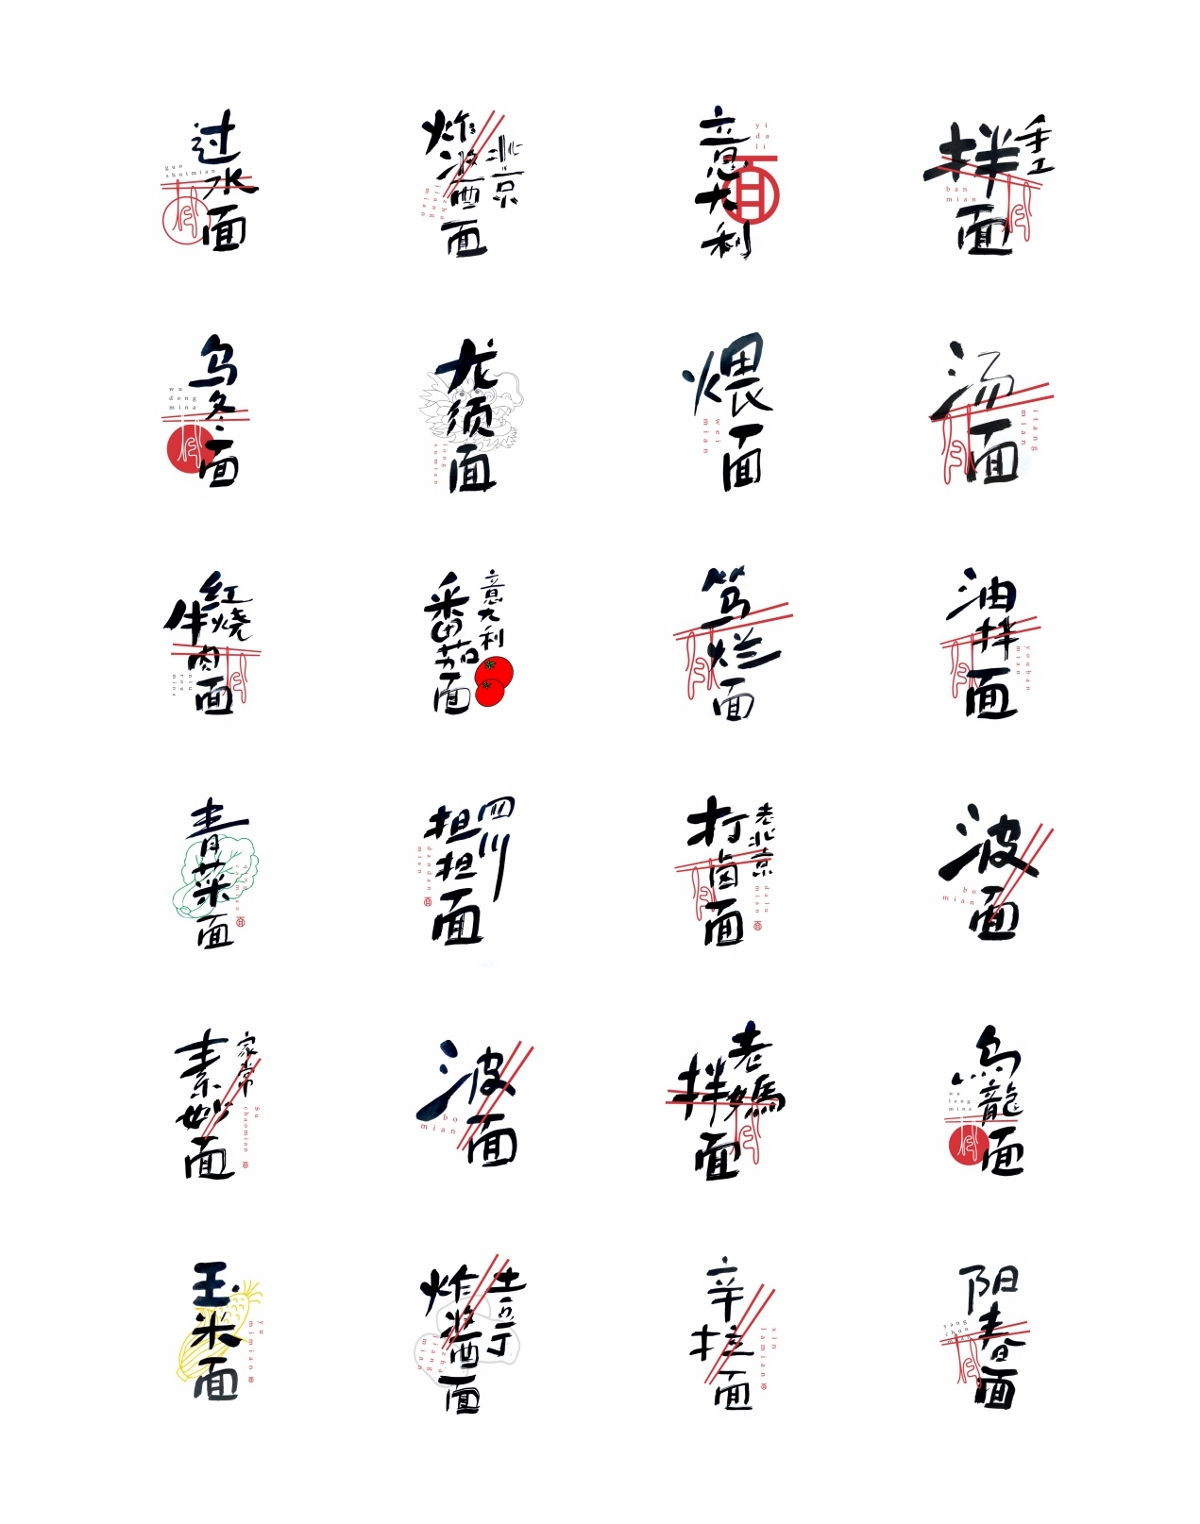 过水面
guo
shuimian
北京
炸酱面
zha
jiang
mian
意大利
面
yi
dali
手工
拌面
ban
mian
乌冬面
wu
dong
mina
龙须面
long
xumian
煨面
wei
mian
汤面
tang
mian
紅燒
牛肉面
niu
rou
mina
意大利
番茄面
笃烂面
油拌面
youban
mian
青菜面
四川
担担面
dandan
mian
面
老北京
打卤面
dalu
mian
面
波面
bo
mian
家常
素炒面
Su
chaomian
面
波面
bo
mian
老媽
拌面
烏龍面
wu
long
mina
玉米面
yu
mimian
面
土豆丁
炸醬面
zha
jiang
mian
辛拉面
xin
lamian
面
阳春面
yang
chun
mian